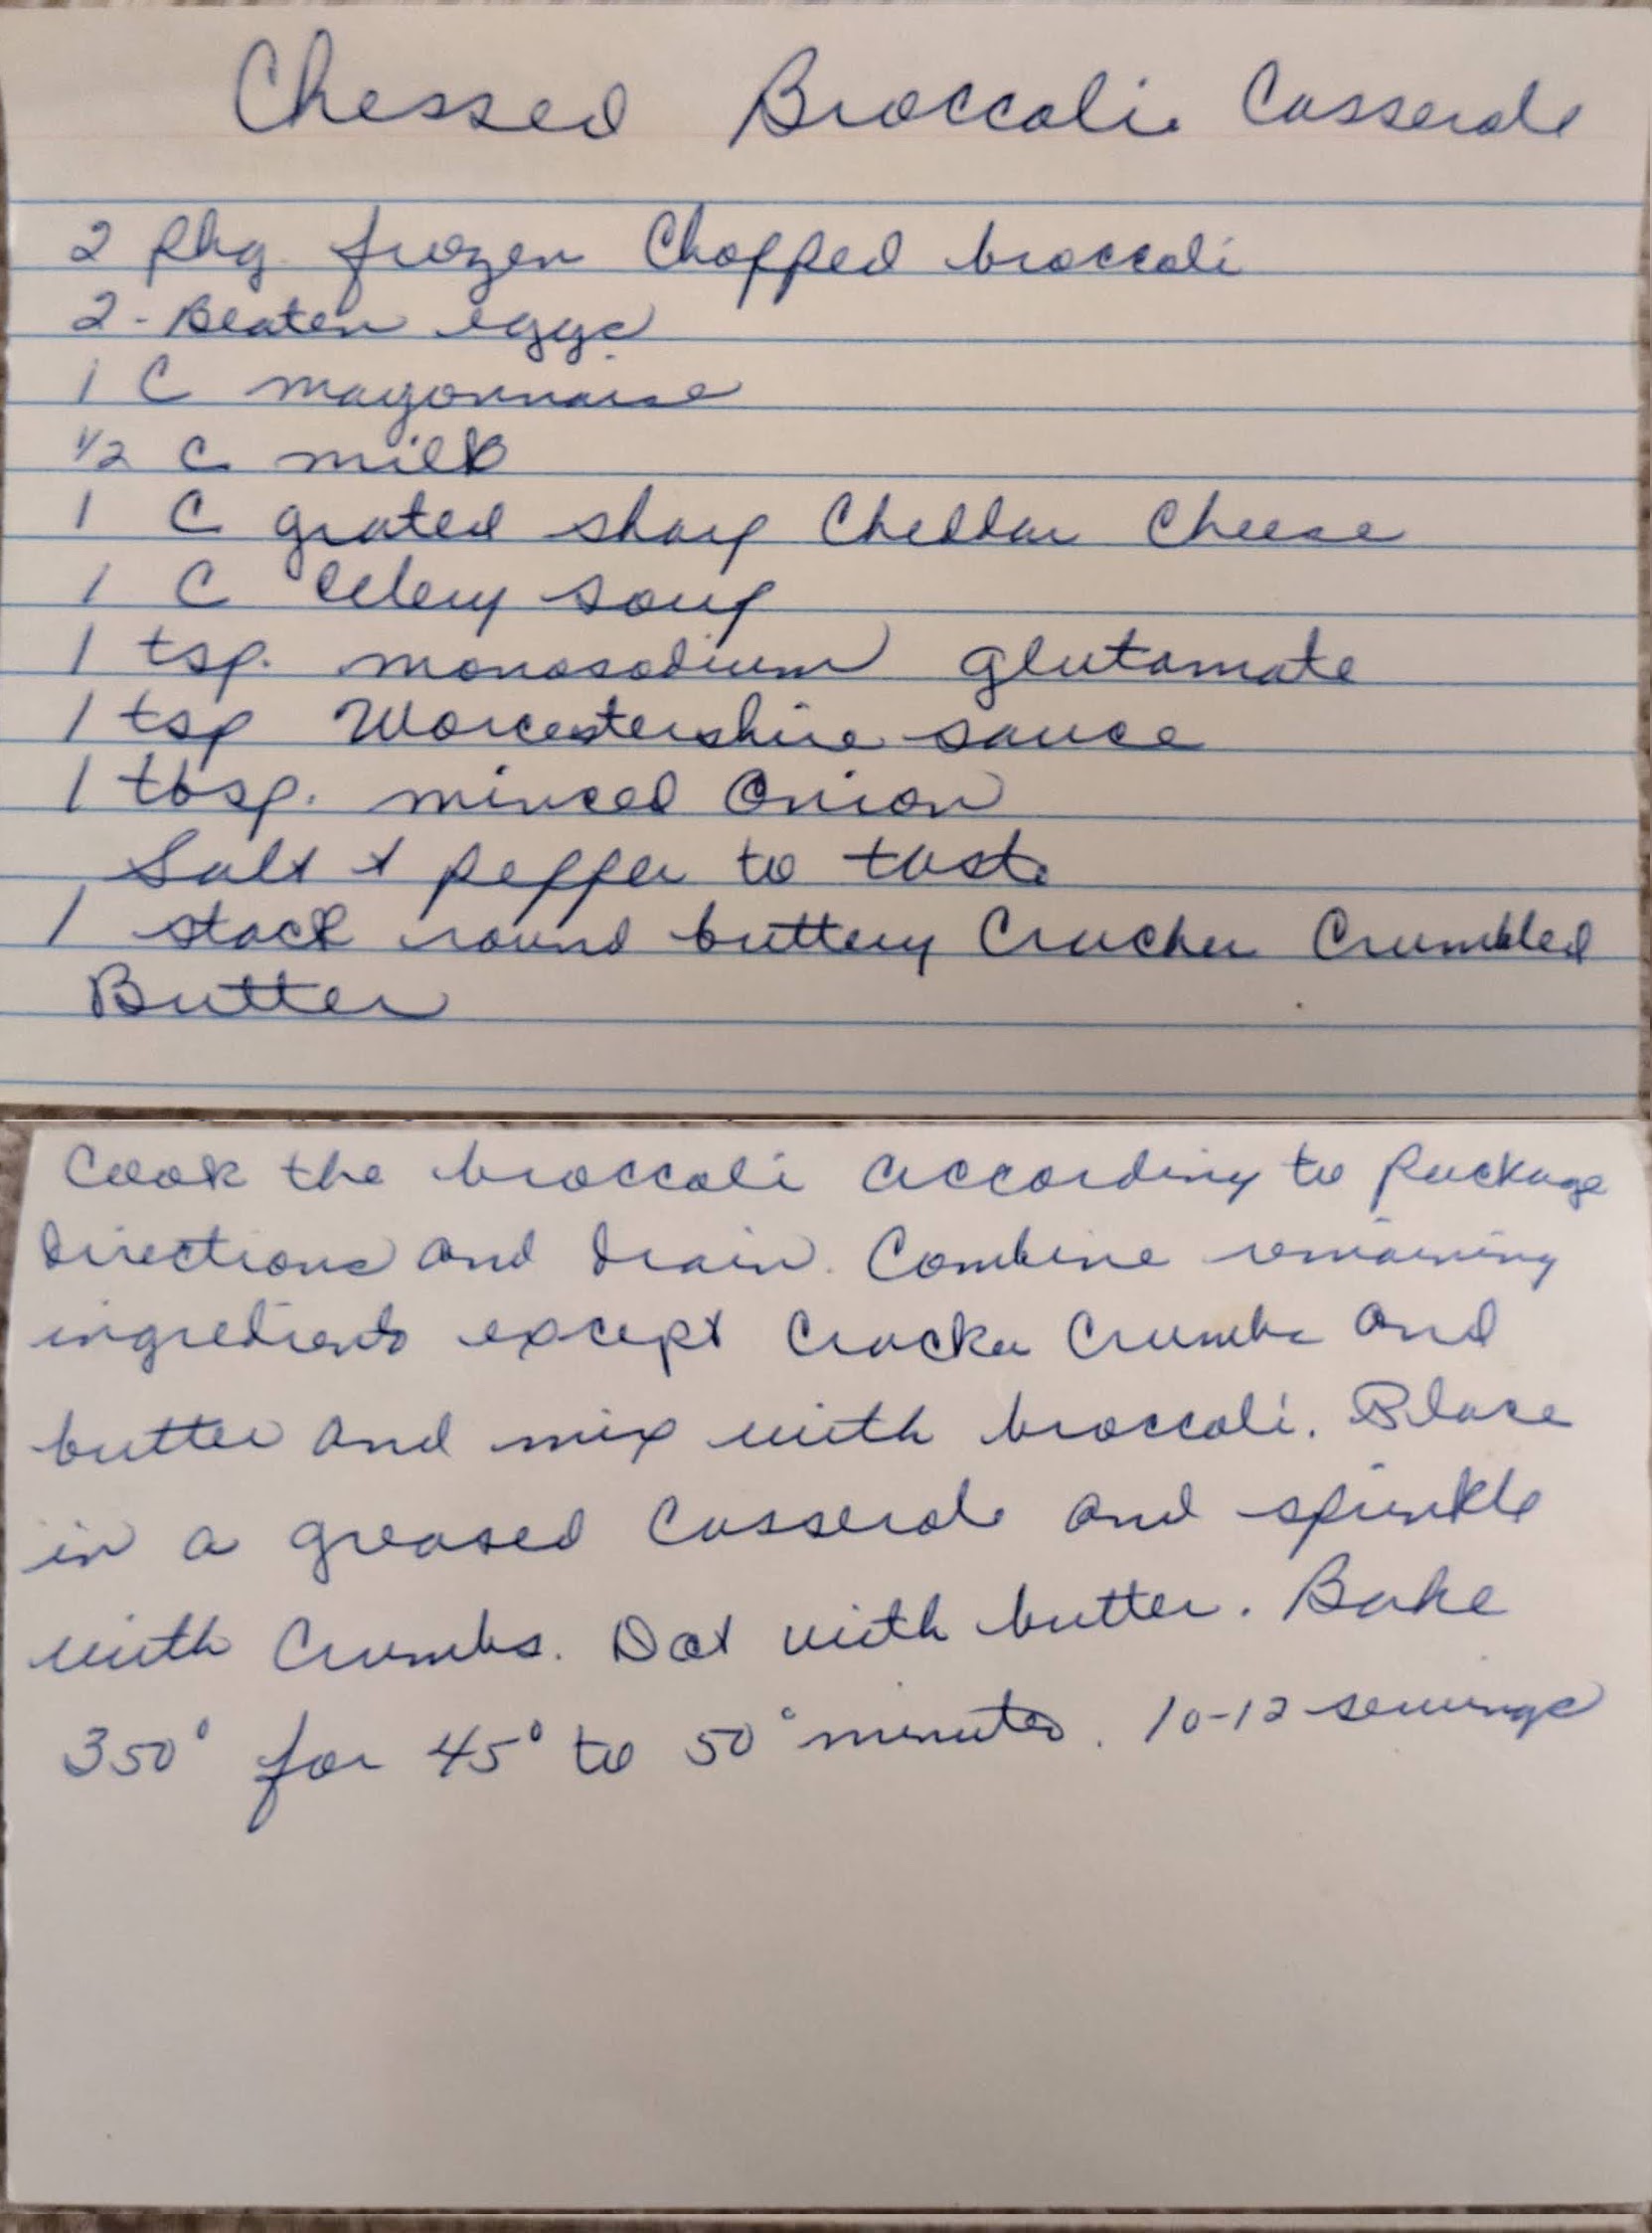 Chessed Broccoli Casserole
2 pkg frozen Chopped broccoli
2 - Beaten eggs
1 C mayonnaise
1/2 C milk
1 C grated sharp Cheddar Cheese
1 C Celery soup
1 tsp. monosodium glutamate
1 tsp Worcestershire sauce
1 tbsp. minced Onion
Salt & pepper to taste
1 stack round buttery Cracker Crumbled
Butter
Cook the broccoli according to package
directions and drain. Combine remaining
ingredients except Cracker Crumbs and
butter and mix with broccoli. Place
in a greased Casserole and sprinkle
with Crumbs. Dot with butter. Bake
350° for 45° to 50° minutes. 10-12 servings